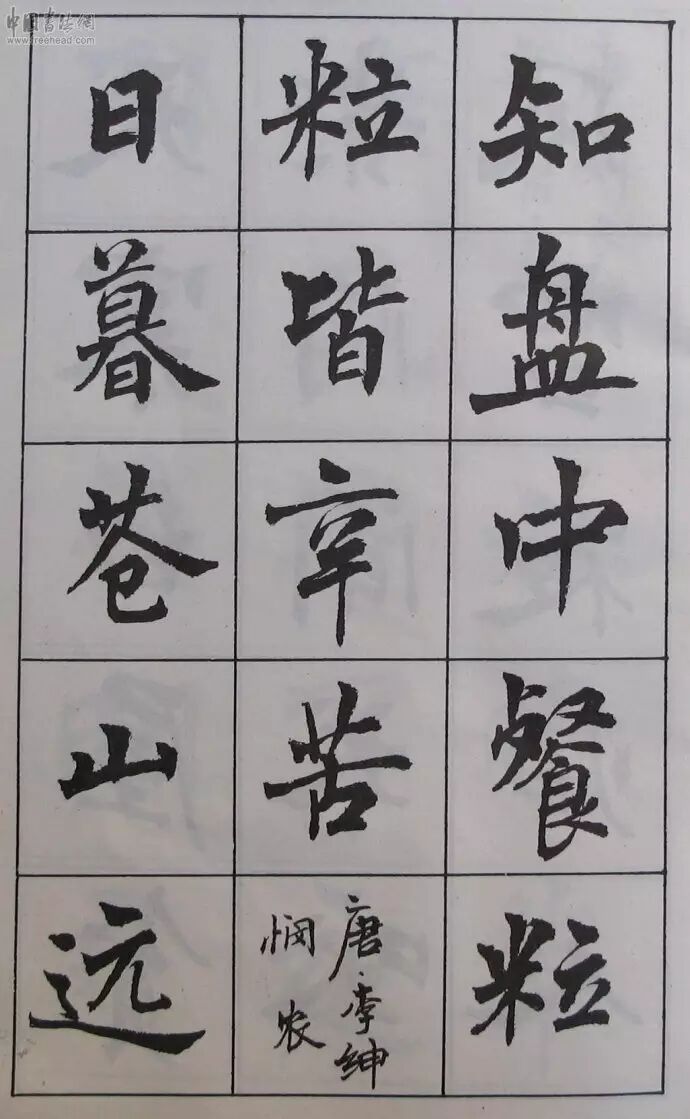 中国书法網
www.freehead.com
知盘中餐粒
粒皆辛苦
唐·李绅
悯农
日暮苍山远